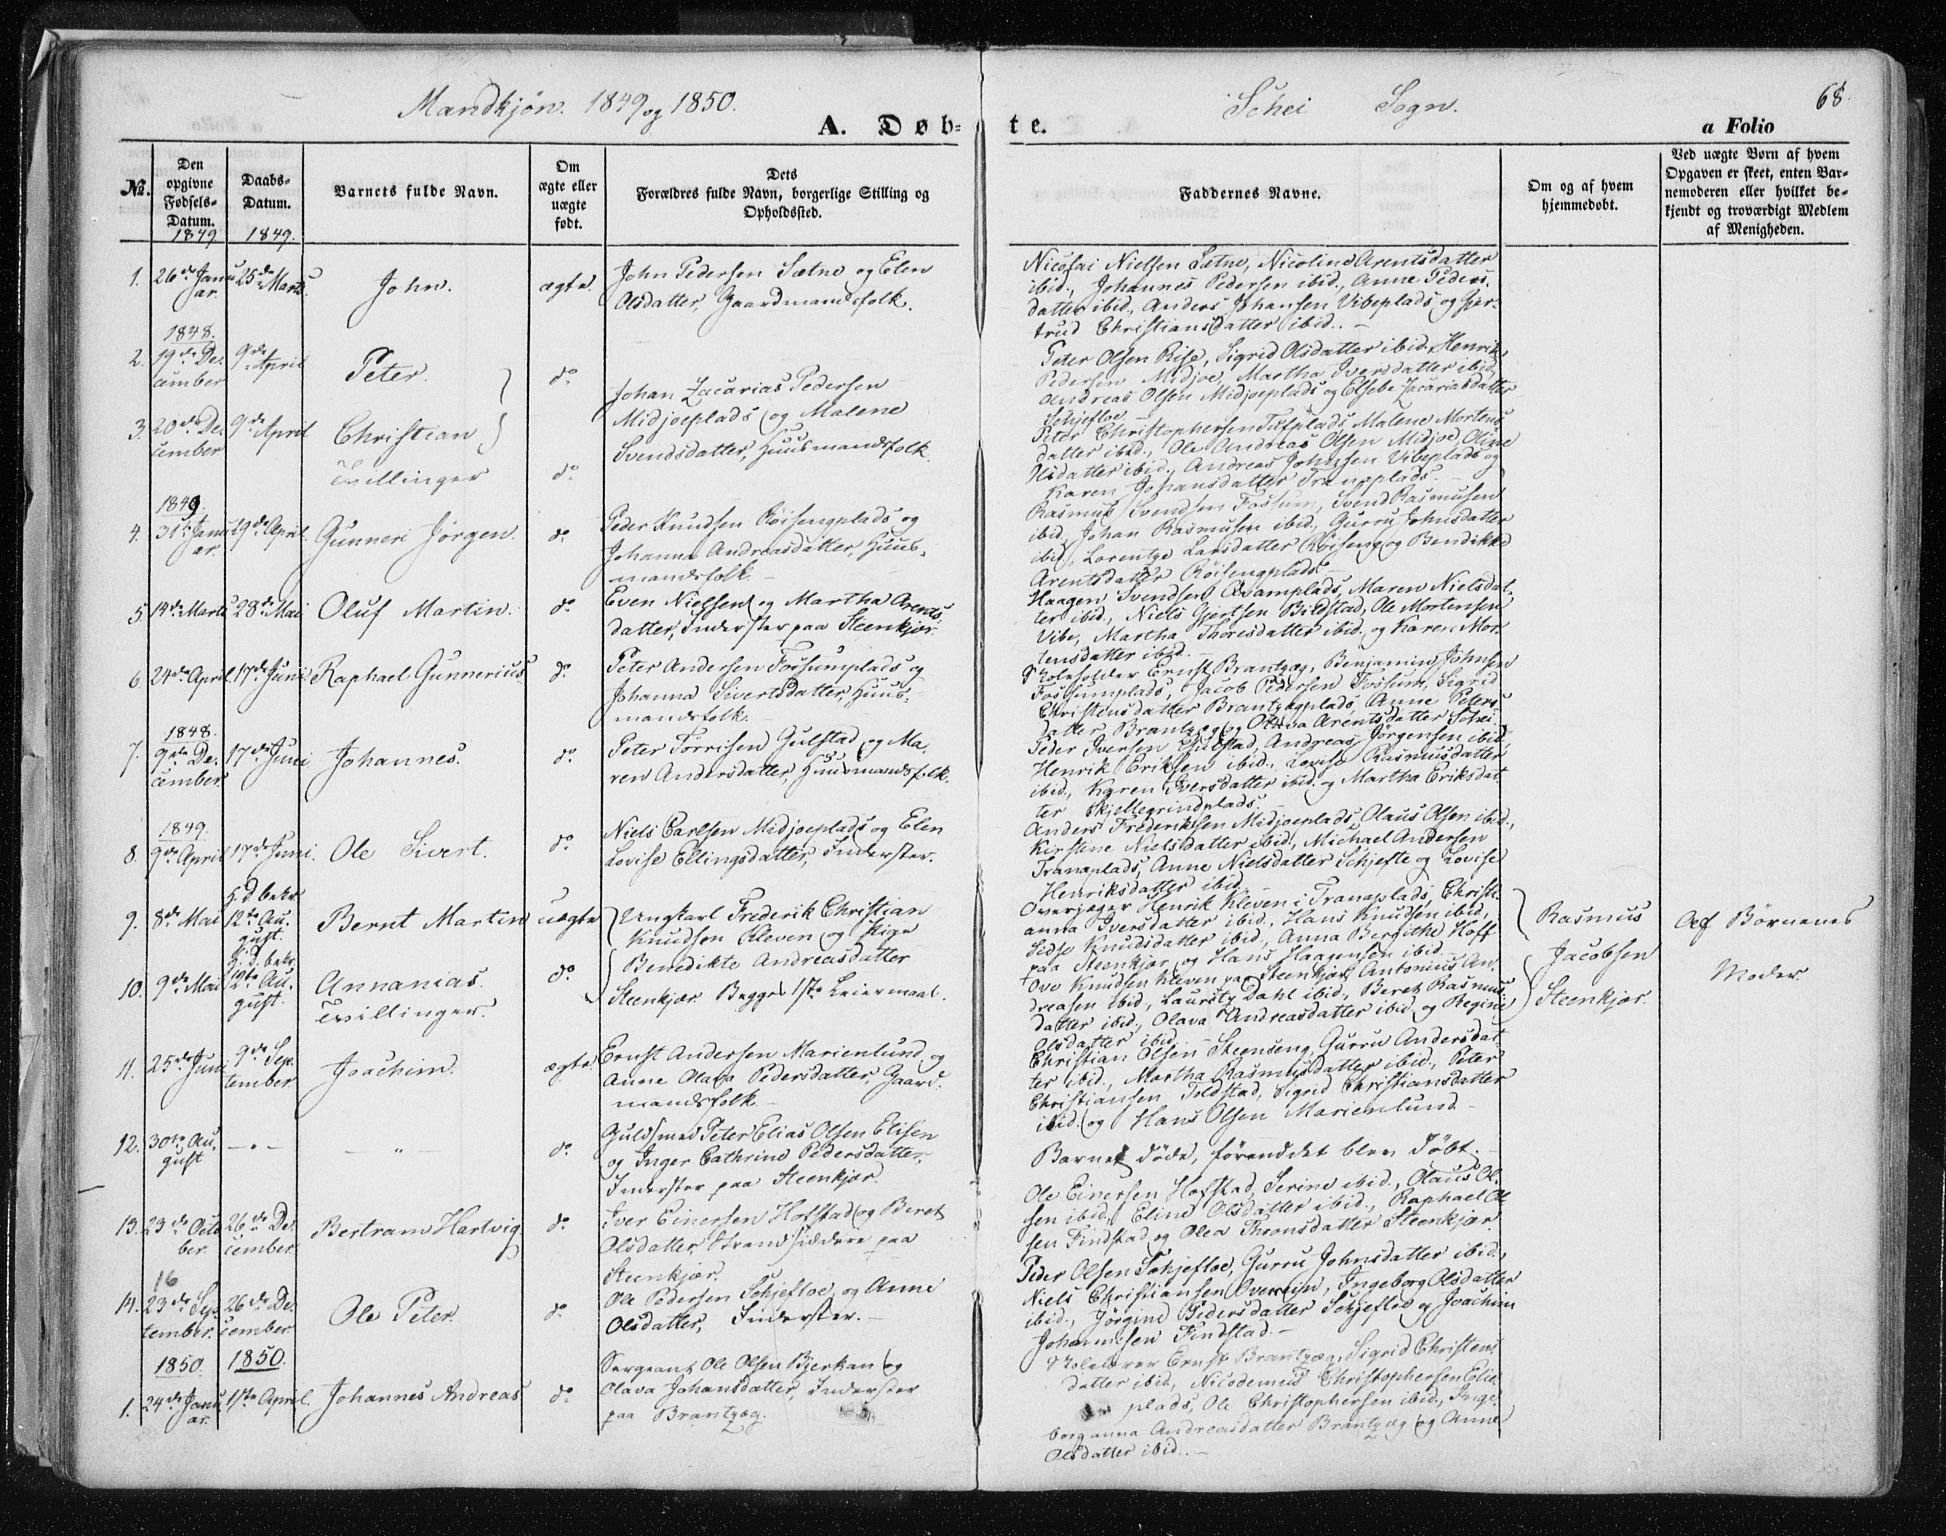 Mandkjøn. 1849 og 1850.
Schei Sogn.
68.
A. Døb-
te.
a Folio
No.
Den opgivne Fødsels-Datum.
Daabs-Datum.
Barnets fulde Navn.
Om ægte eller uægte født.
Dets Forældres fulde Navn, borgerlige Stilling og Opholdssted.
Faddernes Navne.
Om og af hvem hjemmedøbt.
Ved uægte Børn af hvem Opgaven er skeet, enten Barnemoderen eller hvilket bekjendt og troværdigt Medlem af Menigheden.
1849
1849.
1. 26de Januar 25de Marts. John. ægte.
John Pedersen Sætne og Elen
Olsdatter, Gaardmandsfolk.
Nicolai Nielsen Sætne, Nicoline Arentsdatter
ibid., Johannes Pedersen ibid., Anne Peders-
datter ibid., Anders Johansen Vibeplads og Gjer-
trud Christiansdatter ibid. -
1848.
2. 19de December 9de April Peter. do
3. 20de December 9de April Christian do
Tvillinger
Johan Zacarias Pedersen
Midjoeplads og Malene
Svendsdatter, Huusmandsfolk.
Peter Olsen Rise, Sigrid Olsdatter ibid. Henrik
Pedersen Midjoe, Martha Iversdatter ibid,
Andreas Olsen Midjoeplads og Elsebe Zacariasdatter
Schjefloe
Peter Christophersen Tufplads Malene Mortens
datter ibid., Ole Andreas Olsen Midjoe, Oline
Olsdatter ibid., Andreas Johnsen Vibeplads og
Karen Johansdatter Tranaplads. -
1849.
4. 31te Januar 19de April. Gunneri Jørgen. do
Peder Knudsen Røisengplads og
Johanna Andreasdatter, Huus-
mandsfolk. -
Rasmus Svendsen Fossum, Svend Rasmusen
ibid., Johan Rasmusen ibid., Gurru Johnsdatter
ibid., Lorentze Larsdatter Røiseng og Bendikke
Arentsdatter Røisengplads. -
5 14de Marts 28de Mai Oluf Martin. do
Even Nielsen og Martha Arents
datter, Inderster paa Steenkjær.
Haagen Svendsen Qvamplads, Maren Nielsdat-
ter ibid., Niels Gjertsen Bildstad, Ole Mortensen
Vibe, Martha Thoresdatter ibid. og Karen Mor-
tensdatter ibid. -
6. 24de April 17de Juni Raphael Gunnerius. do
Peter Andersen Fossumplads og
Johanna Sivertsdatter, Huus-
mandsfolk. -
Skoleholder Ernst Brantzæg, Benjamin Johnsen
Fossumplads, Jacob Pedersen Fossum, Sigrid
Christensdatter Brantzægplads, Anne Peters-
datter Brantzæg og Olava Arentsdatter Schei.
1848.
7. 9de December. 17de Juni Johannes. do
Peter Torrisen Gulstad og Ma-
ren Andersdatter, Huusmandsfolk.
Peder Iversen Gulstad, Andreas Jørgensen ibid.
Henrik Eriksen ibid., Lovise Rasmusdatter
ibid., Karen Iversdatter ibid. og Martha Eriksdat
ter Skjellegrindplads. -
1849.
8. 9de April 17de Juni. Ole Sivert. do
Niels Carlsen Midjoeplads og Elen
Lovise Ellingsdatter, Inderster.
Anders Frederiksen Midjoeplads, Olaus Olsen ibid.,
Kirstine Nielsdatter ibid., Michael Andersen
Tranaplads, Anne Nielsdatter Schjefte og Lovise
Henriksdatter ibid.
9. 8de Mai H. d. bekr. 12te August. Bernt Martin uægte
10. 9de Mai H. d. bekr. 12te August. Annanias. do
Tvillinger.
Ungkarl Frederik Christian
Knudsen Kleven og Pige
Benedikte Andreasdatter
Steenkjær Begges 1ste Leiermaal.
Overjæger Henrik Kleven i Tranaplads, Christi-
anna Iversdatter ibid. Hans Knudsen ibid.,
Sidse Knudsdatter ibid., Anna Bergithe Hoff
paa Steenkjær og Hans Haagensen ibid.
Ove Knudsen Kleven paa Steenkjær, Antonius An-
dreasen ibid., Lauritz Dahl ibid., Beret Rasmus
datter ibid., Olava Andreasdatter ibid. og Regine
Olsdatter ibid. -
Rasmus
Jacobsen
Steenkjær.
Af Børnenes
Moder
11. 25de Juni 9de September Joachim. ægte.
Ernst Andersen Marienlund og
Anne Olava Pedersdatter, Gaard-
mandsfolk. -
Christian Olsen Steenseng, Gurru Andersdat
ter ibid., Martha Rasmusdatter ibid., Peter
Christiansen Toldstad, Sigrid Christiansdatter
ibid. og Hans Olsen Marienlund. -
12. 30te August - " - - " - do
Guldsmed Peter Elias Olsen Elisen
og Inger Cathrine Pedersdatter,
Inderster paa Steenkjær.
Barnet døde, førend det blev døbt. -
13. 23de October. 26de December. Bertram Hartvig do
Iver Einersen Hofstad og Beret
Olsdatter, Strandsiddere paa
Steenkjær.
Ole Einersen Hofstad, Serine ibid., Olaus Ol-
sen ibid., Eline Olsdatter ibid., Raphael Ol
sen Findstad og Olea Thronsdatter Steenkjær
16
14. 23de September. 26de December. Ole Peter. do
Ole Pedersen Schjefloe og Anne
Olsdatter, Inderster. -
Peder Olsen Schjefloe, Gurru Johnsdatter ibid.,
Niels Christiansen Overrein, Ingeborg Olsdatter
ibid., Jørgine Pedersdatter Schjefloe og Joachim
Johannesen Findstad. -
1850. 1850.
1. 24de Januar. 1ste April. Johannes Andreas do
Sergeant Ole Olsen Bjerkan og
Olava Johansdatter, Inderster
paa Brantzæg.
Skolelærer Ernst Brantzæg, Sigrid Christens
datter ibid., Nicodemus Christophersen Elie
plads, Ole Christophersen ibid., Inge-
borganna Andreasdatter Brantzæg og Anne
Olsdatter ibid. -